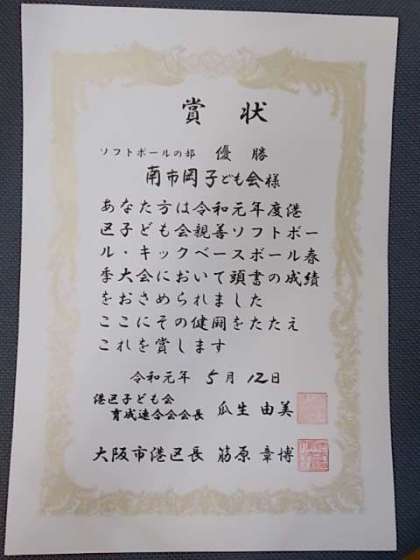 賞状
ソフトボールの部 優勝
南市岡子ども会様
あなた方は令和元年度港
区子ども会親善ソフトボー
ル・キックベースボール春
季大会において頭書の成績
をおさめられました
ここにその健闘をたたえ
これを賞します
令和元年 5月 12日
港区子ども会
育成連合会会長 瓜生 由美
大阪市港区長 筋原 章博